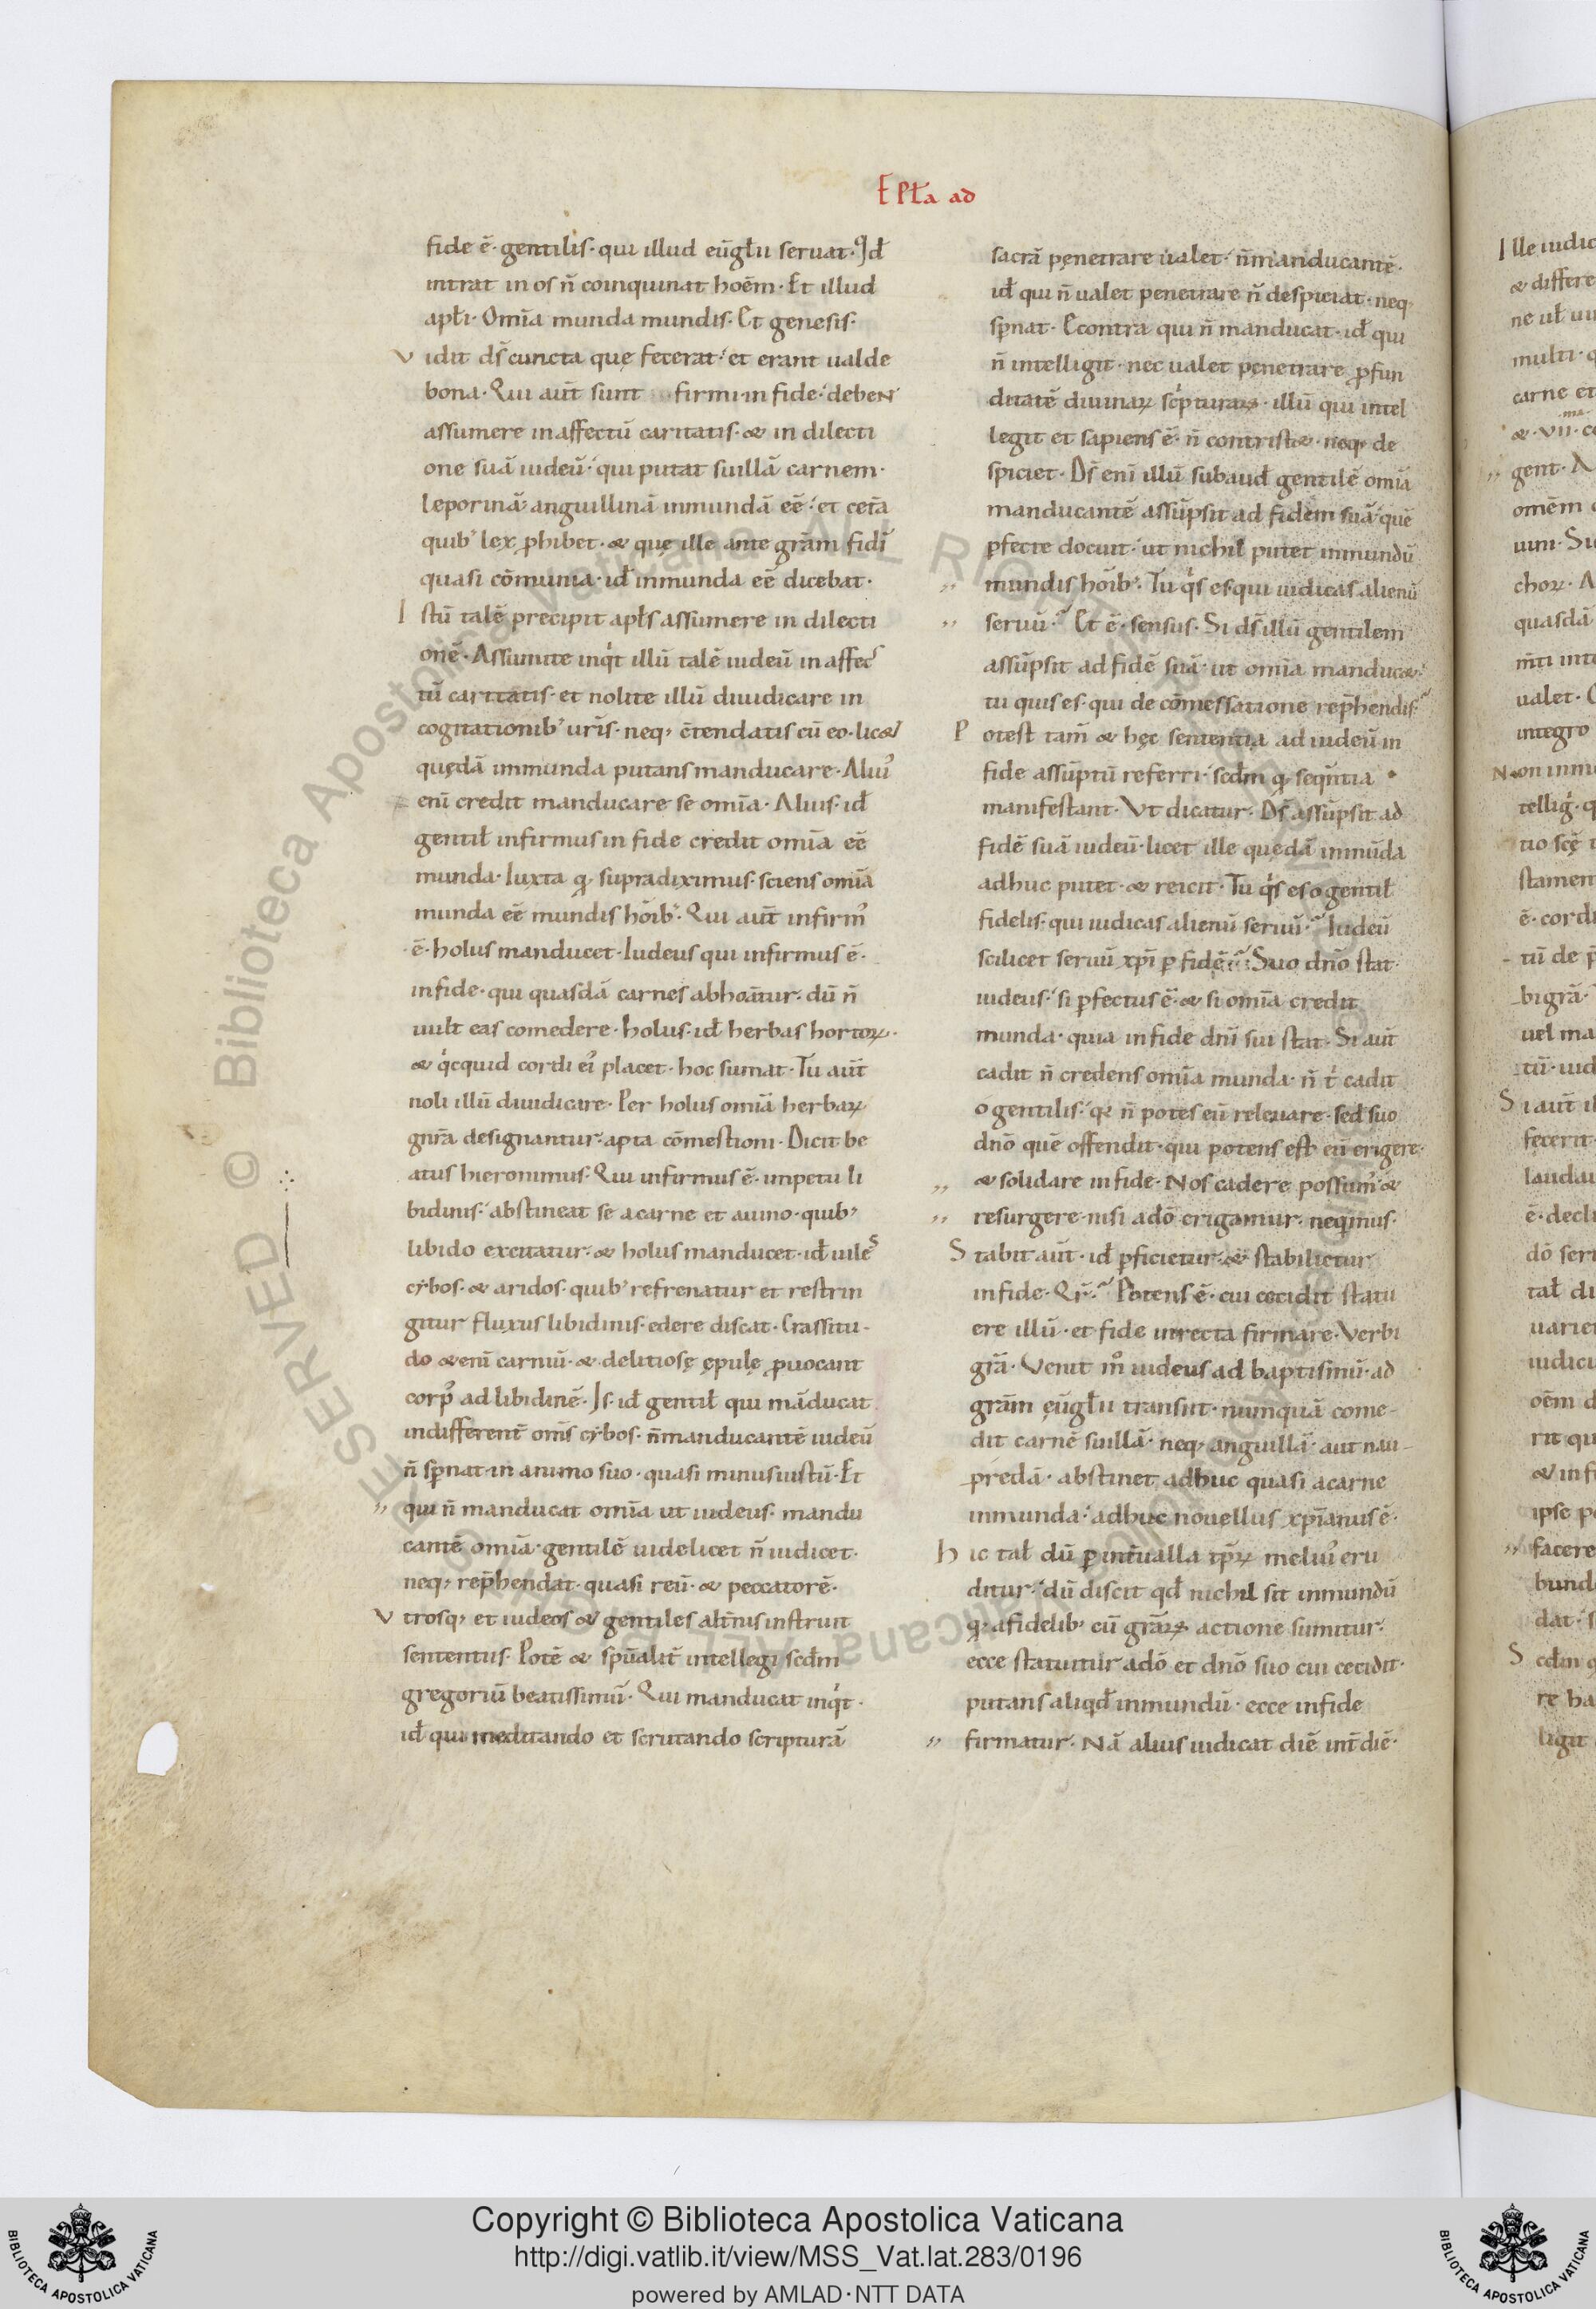 EPła ad
fide ē· gentilis· qui illud eūgłıı seruat· Qd̄
intrat in os n̄ coinquinat hoēm· Et illud
apłi· Omīa munda mundis· Et genesis·
Vidit ds̄ cuncta quę fecerat· et erant ualde
bona· Qui aūt sunt firmi in fide· debeN̄
assumere in affectū caritatis· & in dilecti
one suā iudeū· qui putat suillā carnem·
leporinā· anguillinā inmundā eē· et cetā
quib' lex ꝓhibet· & quę ille ante grām fidi
quasi cōmunia· id̄ inmunda eē dicebat·
Istū talē precipit apłs assumere in dilecti
onē· Assumite inqͥt illū talē iudeū in affec
tū caritatis· et nolite illū diiudicare in
cogitationib' uris̄· neq; ctendatis cū eo· lic&
quędā immunda putans manducare· Aliuˀ
enī credit manducare se omīa· Alius· id̄
gentił infirmus in fide credit omīa eē
munda· Iuxta qꝫ supradiximus· sciens omīa
munda eē mundis hōib'· Qui aūt infirmˀ
ē· holus manducet· Iudeus qui infirmus ē·
in fide· qui quasdā carnes abhoātur· dū n̄
uult eas comedere· holus· id̄ herbas hortoꝝ·
& qͥcquid cordi eiˀ placet· hoc sumat· Tu aūt
noli illū diiudicare· Per holus omīa herbaꝝ
gnīa designantur· apta cōmestioni· Dicit be
atus hieronimus· Qui infirmus ē· impetu li
bidinis· abstineat se a carne et a uino· quib'
libido excitatur· & holus manducet· id̄ uiles
cybos· & aridos· quib' refrenatur et restrin
gitur fluxus libidinis· edere discat· Crassitu-
do & enī carniū· & delitiosę ępulę ꝓuocant
corpˀ ad libidinē· Is· id̄ gentił qui māducat
indifferent̄ oms̄ cybos· n̄ manducantē iudeū
n̄ sp̄nat in animo suo· quasi minus iustū· Et
qui n̄ manducat omīa ut iudeus· mandu
cantē omīa· gentilē uidelicet n̄ iudicet·
neq; rep̄hendat· quasi reū· & peccatorē·
Vtrosq; et iudeos & gentiles alt̄nis instruit
sententiis· Potē & spūalit̄ intellegi scd̄m
gregoriū beatissimū· Qui manducat inqͥt·
id̄ qui meditando et scrutando scripturā
sacrā pęnetrare ualet· n̄ manducantē·
id̄ qui n̄ ualet penetrare n̄ despiciat· neq;
sp̄nat· Econtra qui n̄ manducat· id̄ qui
n̄ intelligit· nec ualet pęnetrare ꝓfun
ditatē diuinaꝝ scͥpturaꝝ· illū qui intel
legit et sapiens ē· n̄ contrist&· neq; de
spiciet· Ds̄ enī illū subaud̄ gentilē omīa
manducantē assūpsit ad fidem suā· quē
ꝑfecte docuit· ut nichil putet inmundū
mundis hōib'· Tu qͥs es qui iudicas alienū
seruū· Et ē· sensus· Si ds̄ illū gentilem
assūpsit ad fidē suā· ut omīa manduc&·
tu quis es· qui de cōmessatione rep̄hendis·
Potest tam̄ & hęc sententia ad iudeū in
fide assūptū referri· scd̄m qꝫ seqͥntia
manifestant· Vt dicatur· Ds̄ assūpsit ad
fidē suā iudeū· licet ille quędā inmūda
adhuc putet· & reicit· Tu qͥs es o gentił
fidelis· qui iudicas alienū seruū· Iudeū
scilicet seruū xpī ꝑ fidē· Suo dnō stat·
iudeus· si ꝑfectus ē· & si omīa credit
munda· quia in fide dnī sui stat· Si aūt
cadit n̄ credens omīa munda· n̄ tͥ cadit
o gentilis· qꝛ n̄ potes eū releuare· sed suo
dnō quē offendit· qui potens est eū erigere·
& solidare in fide· Nos cadere possumˀ &
resurgere nisi a dō erigamur· neqͥmus·
Stabit aūt· id̄ ꝑficietur· & stabilietur
in fide· Qr̄· Potens ē· cui cecidit statu
ere illū· et fide in recta firmare· Verbi
grā· Venit mͦ iudeus ad baptismū· ad
grām eūgłıı transiit· numquā come-
dit carnē suillā· neq; anguillā· aut nau-
predā· abstinet adhuc quasi a carne
inmunda· adhuc nouellus xp̄ianus ē·
Hic tał dū ꝑ int̄ualla tp̄ꝝ meliuˀ eru
ditur· dū discit qd̄ nichil sit inmundū
qꝫ a fidelib' cū grāꝝ actione sumitur·
ecce statuitur a dō et dnō suo cui cecidit·
putans aliqd̄ inmundū· ecce in fide
firmatur· Nā alius iudicat diē int̄ diē·
Copyright © Biblioteca Apostolica Vaticana
http://digi.vatlib.it/view/MSS_Vat.lat.283/0196
powered by AMLAD·NTT DATA